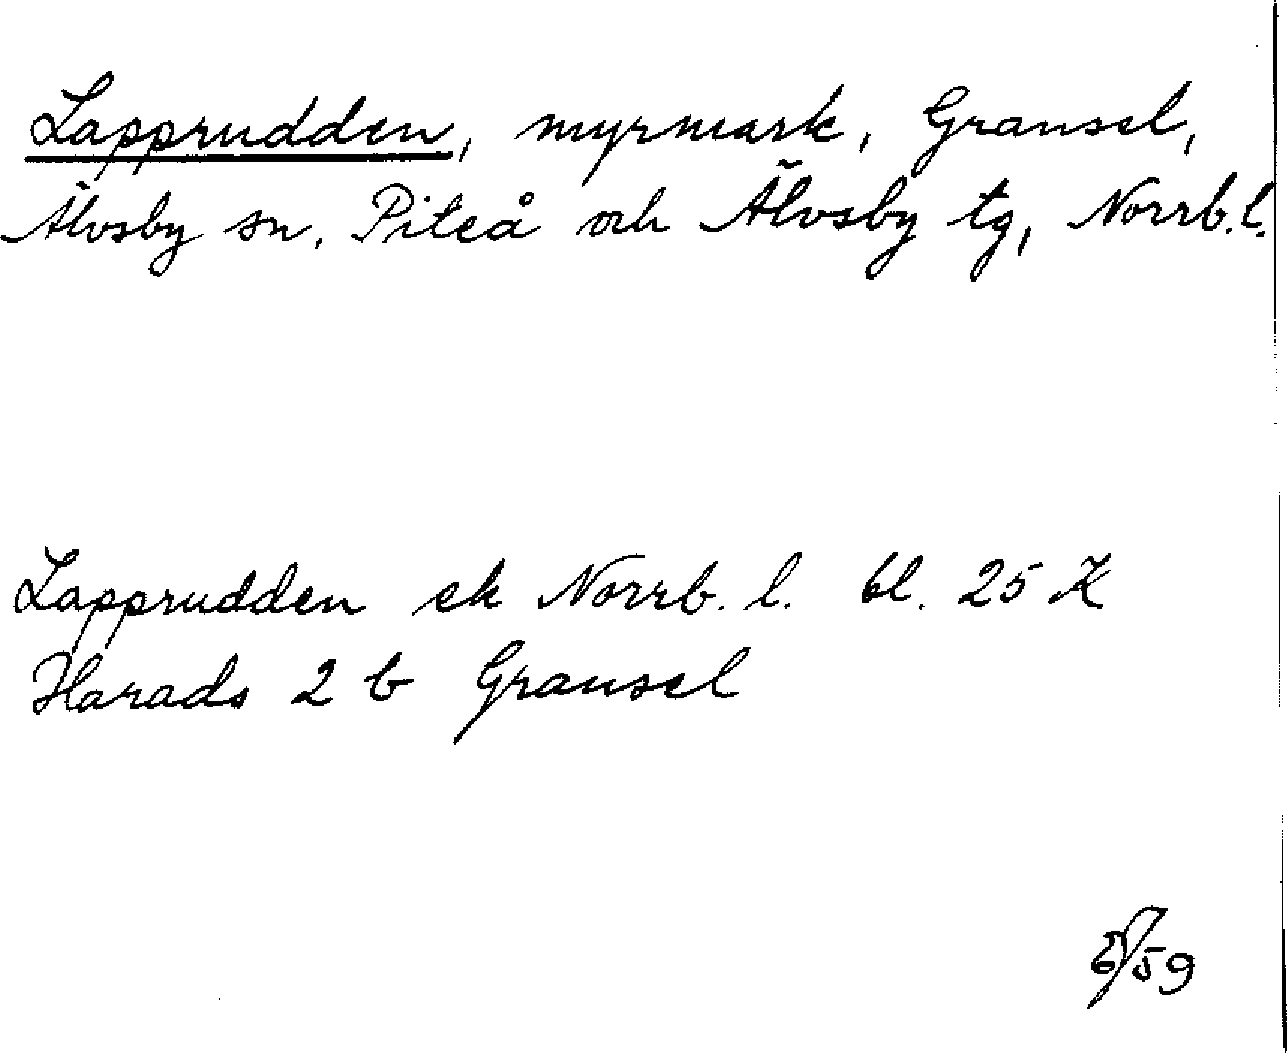 Lapprudden, myrmark, Gransel,
Älvsby sn, Piteå och Älvsby tg, Norrb. l.
Lapprudden ek Norrb. l. bl. 25 K
Harads 2 b Gransel